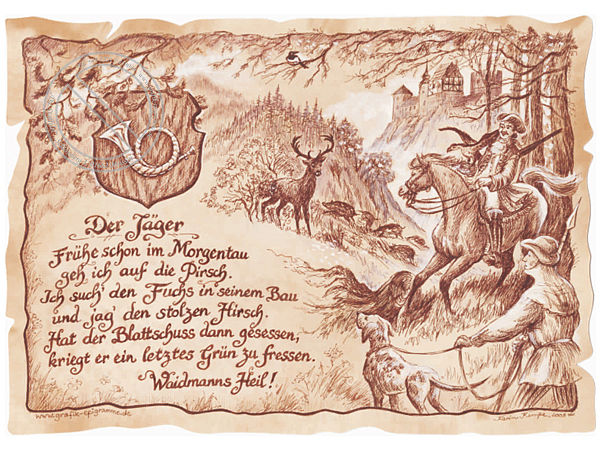 Der Jäger
Frühe schon im Morgentau
geh ich auf die Pirsch.
Ich such' den Fuchs in seinem Bau
und jag' den stolzen Hirsch.
Hat der Blattschuss dann gesessen,
kriegt er ein letztes Grün zu fressen.
Waidmanns Heil!
www.grafik-epigramme.de